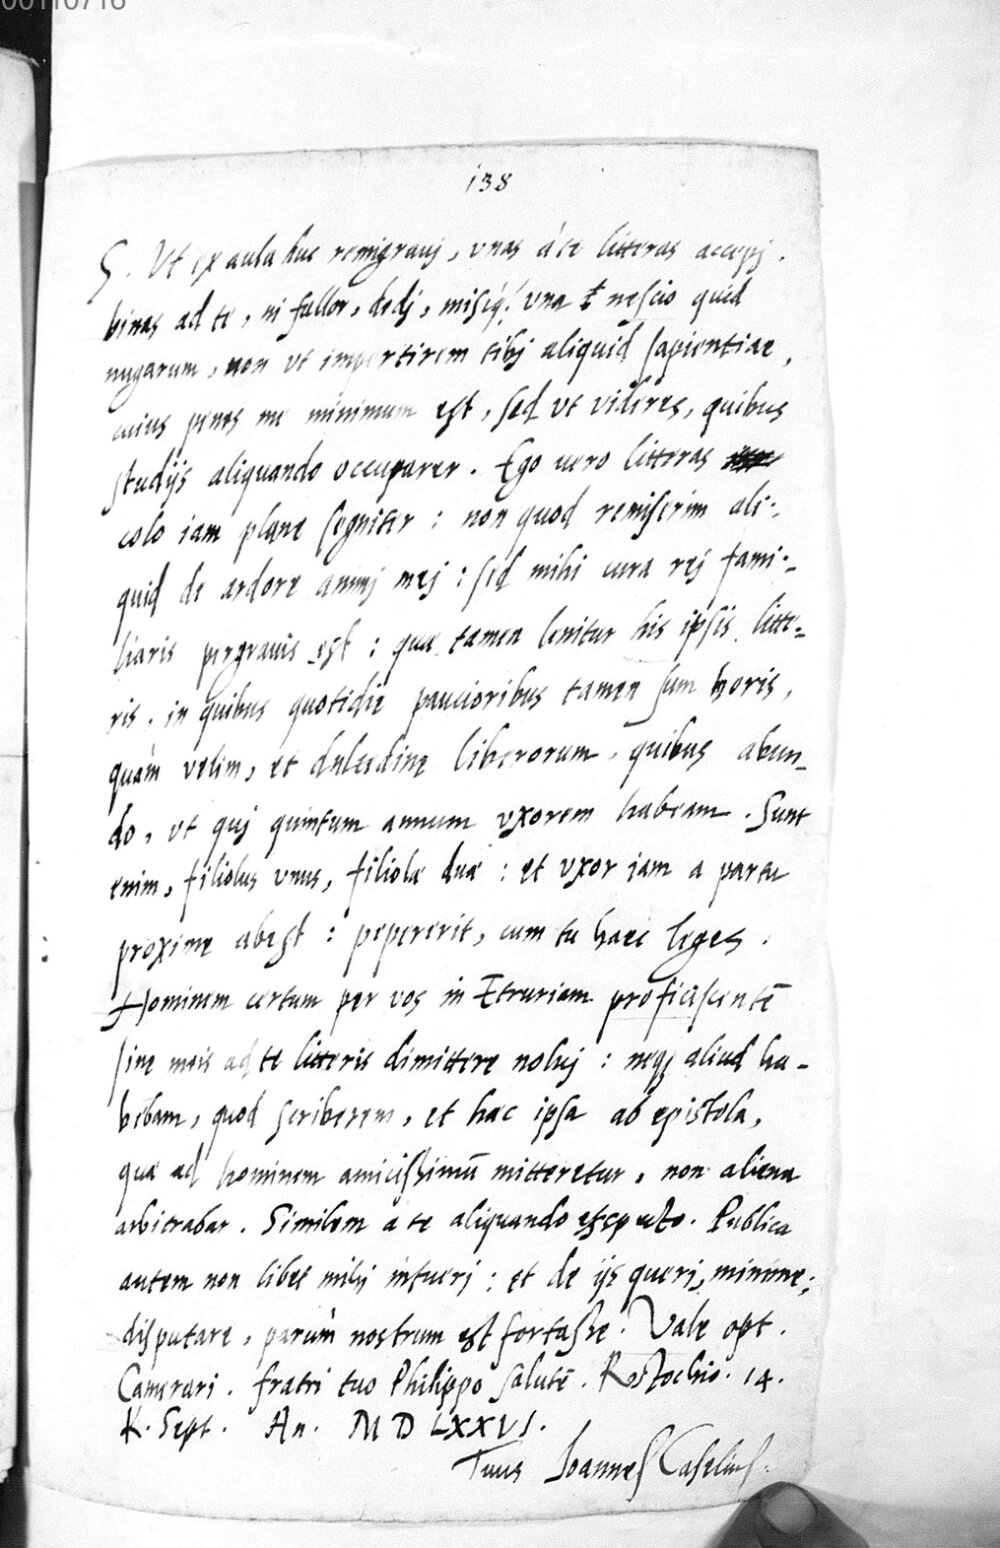 00110716
138
S. Ut ex aula huc remigravj, vnas à te litteras accepj.
binas ad te, ni fallor, dedj, misiq; vna & nescio quid
nugarum, non vt impertirem tibj aliquid sapientiae,
cuius penes me minimum est, sed vt videres, quibus
studijs aliquando occuparer. Ego uero litteras
colo iam plane segniter: non quod remiserim ali-
quid de ardore animj mej: sed mihi cura rej fami-
liaris pergrauis est: quæ tamen lenitur his ipsis litte-
ris, in quibus quotidie paucioribus tamen sum horis,
quàm velim, et dulcedine liberorum, quibus abun-
do, vt quj quintum annum vxorem habeam. Sunt
enim, filiolus vnus, filiolæ duæ: et vxor iam a partu
proxime abest: pepererit, cum tu haec leges.
Hominem certum per vos in Etruriam proficiscentē
sine meis ad te litteris dimittere noluj: neq; aliud ha-
bebam, quod scriberem, et hæc ipsa ab epistola,
quæ ad hominem amicissimū mitteretur, non aliena
arbitrabar. Similem a te aliquando expecto. Publica
autem non libet mihj intuerj: et de ijs queri, minime;
disputare, parùm nostrum est fortasse. Vale opt.
Camerari. fratri tuo Philippo salutē. Rostochio. 14.
K. Sept. An. MDLXXVI.
Tuus Joannes Caselius.